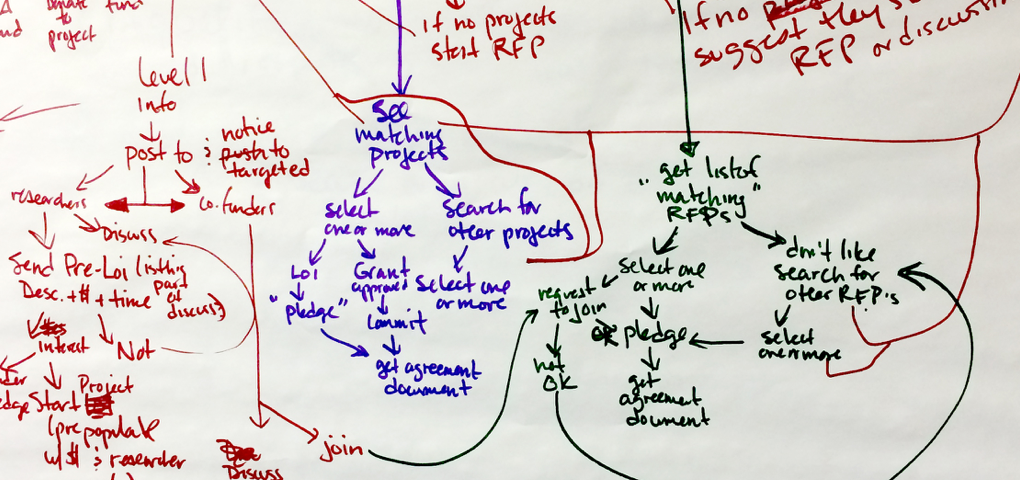 Donate fund
to
project
if no projects
start RFP
If no
suggest they
RFP or discussion
Level 1
Info
post to : notice
push to
targeted
researchers
co.funders
Discuss
Send Pre-Loi listing
Desc. + $ + time (part
of
discuss)
interest
Not
Start Project
(prepopulate
w/ $ : researcher
Discuss
join
See
matching
projects
select
one or more
Search for
other projects
LOI
"pledge"
Grant
approved
Commit
Select one
or more
get agreement
document
"get list of
matching"
RFPs
select one
or more
don't like
search for
other RFP's
request
to join
or pledge
select
one or more
not
OK
get
agreement
document